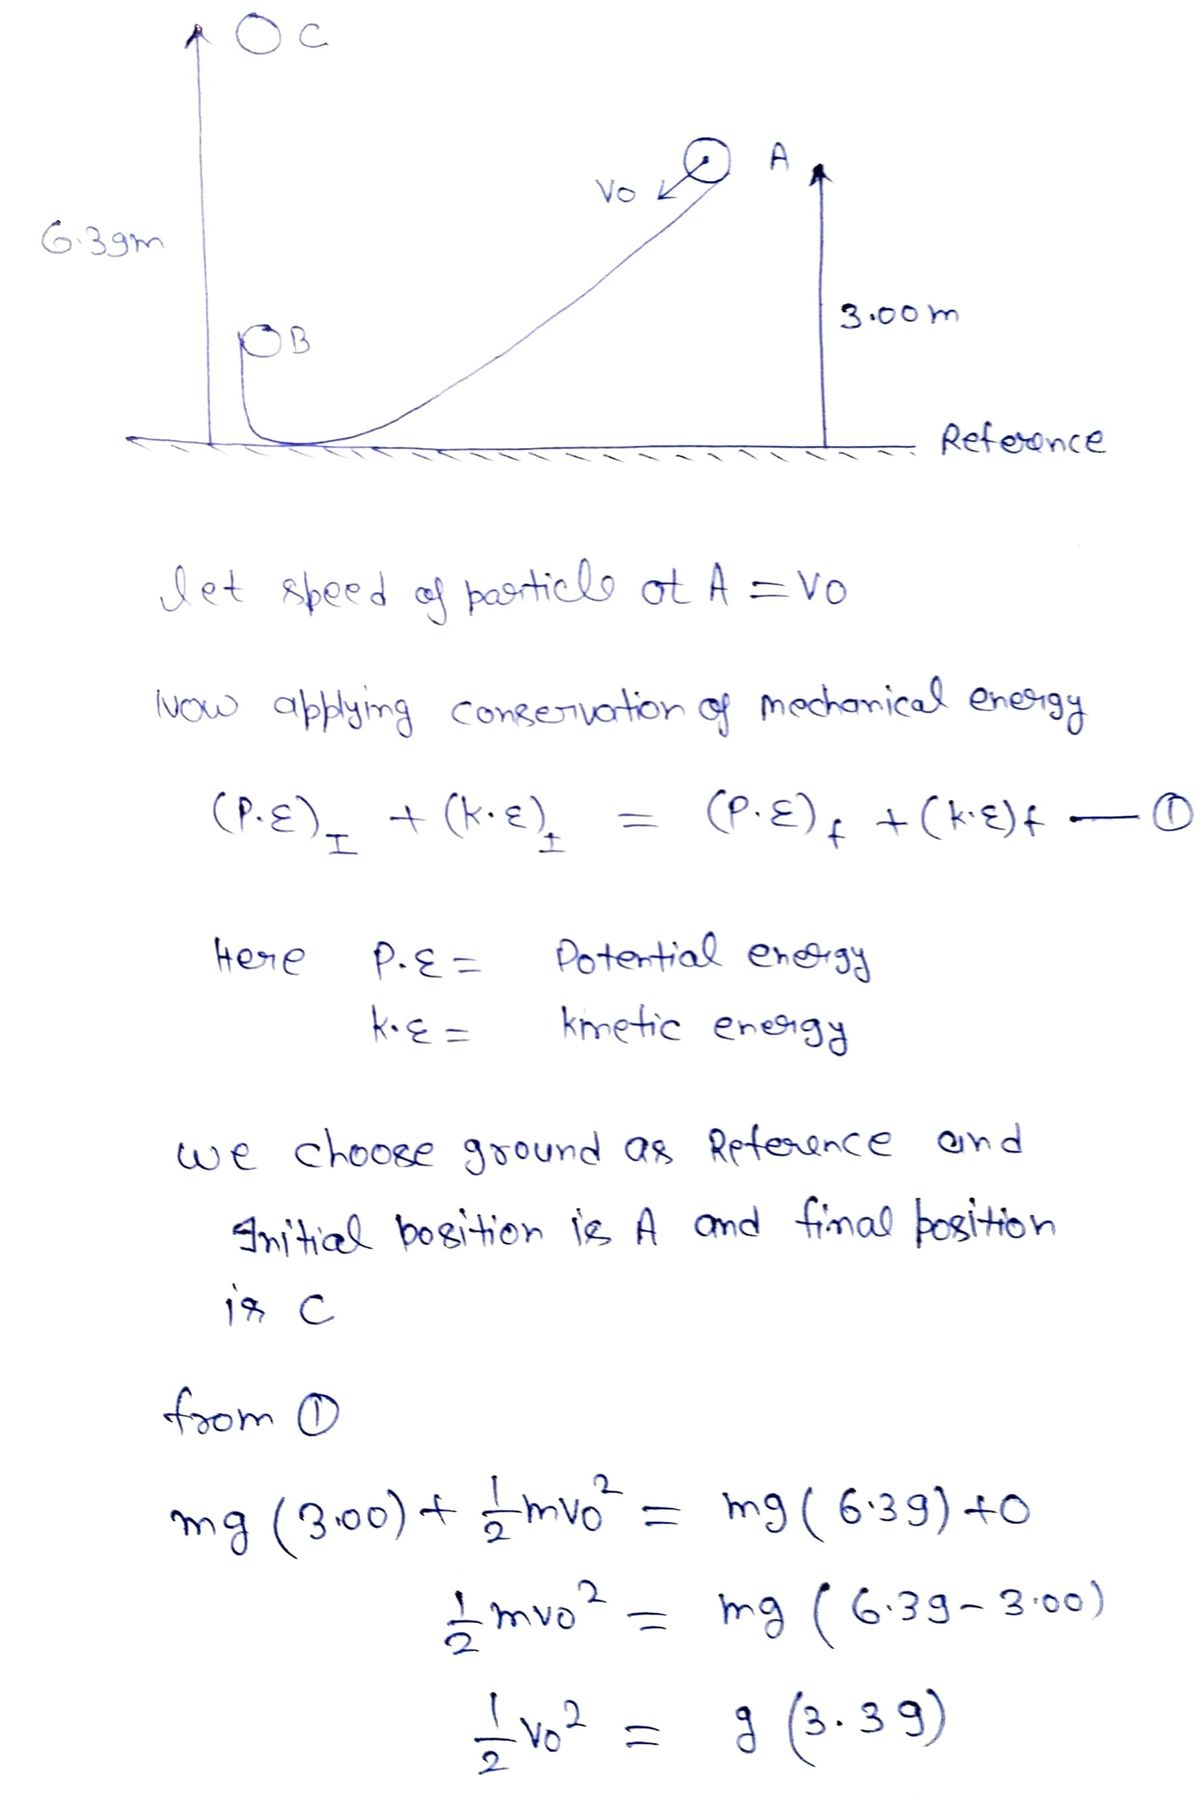 C
A
Vo
6.39m
3.00m
B
Reference
let speed of particle at A = Vo
Now applying conservation of mechanical energy
(P.E)I + (K.E)I = (P.E)f + (K.E)f — ①
Here P.E = Potential energy
K.E = kinetic energy
we choose ground as Reference and
Initial position is A and final position
is C
from ①
mg (3.00) + 1/2 mvo² = mg (6.39) + 0
1/2 mvo² = mg (6.39 - 3.00)
1/2 vo² = g (3.39)